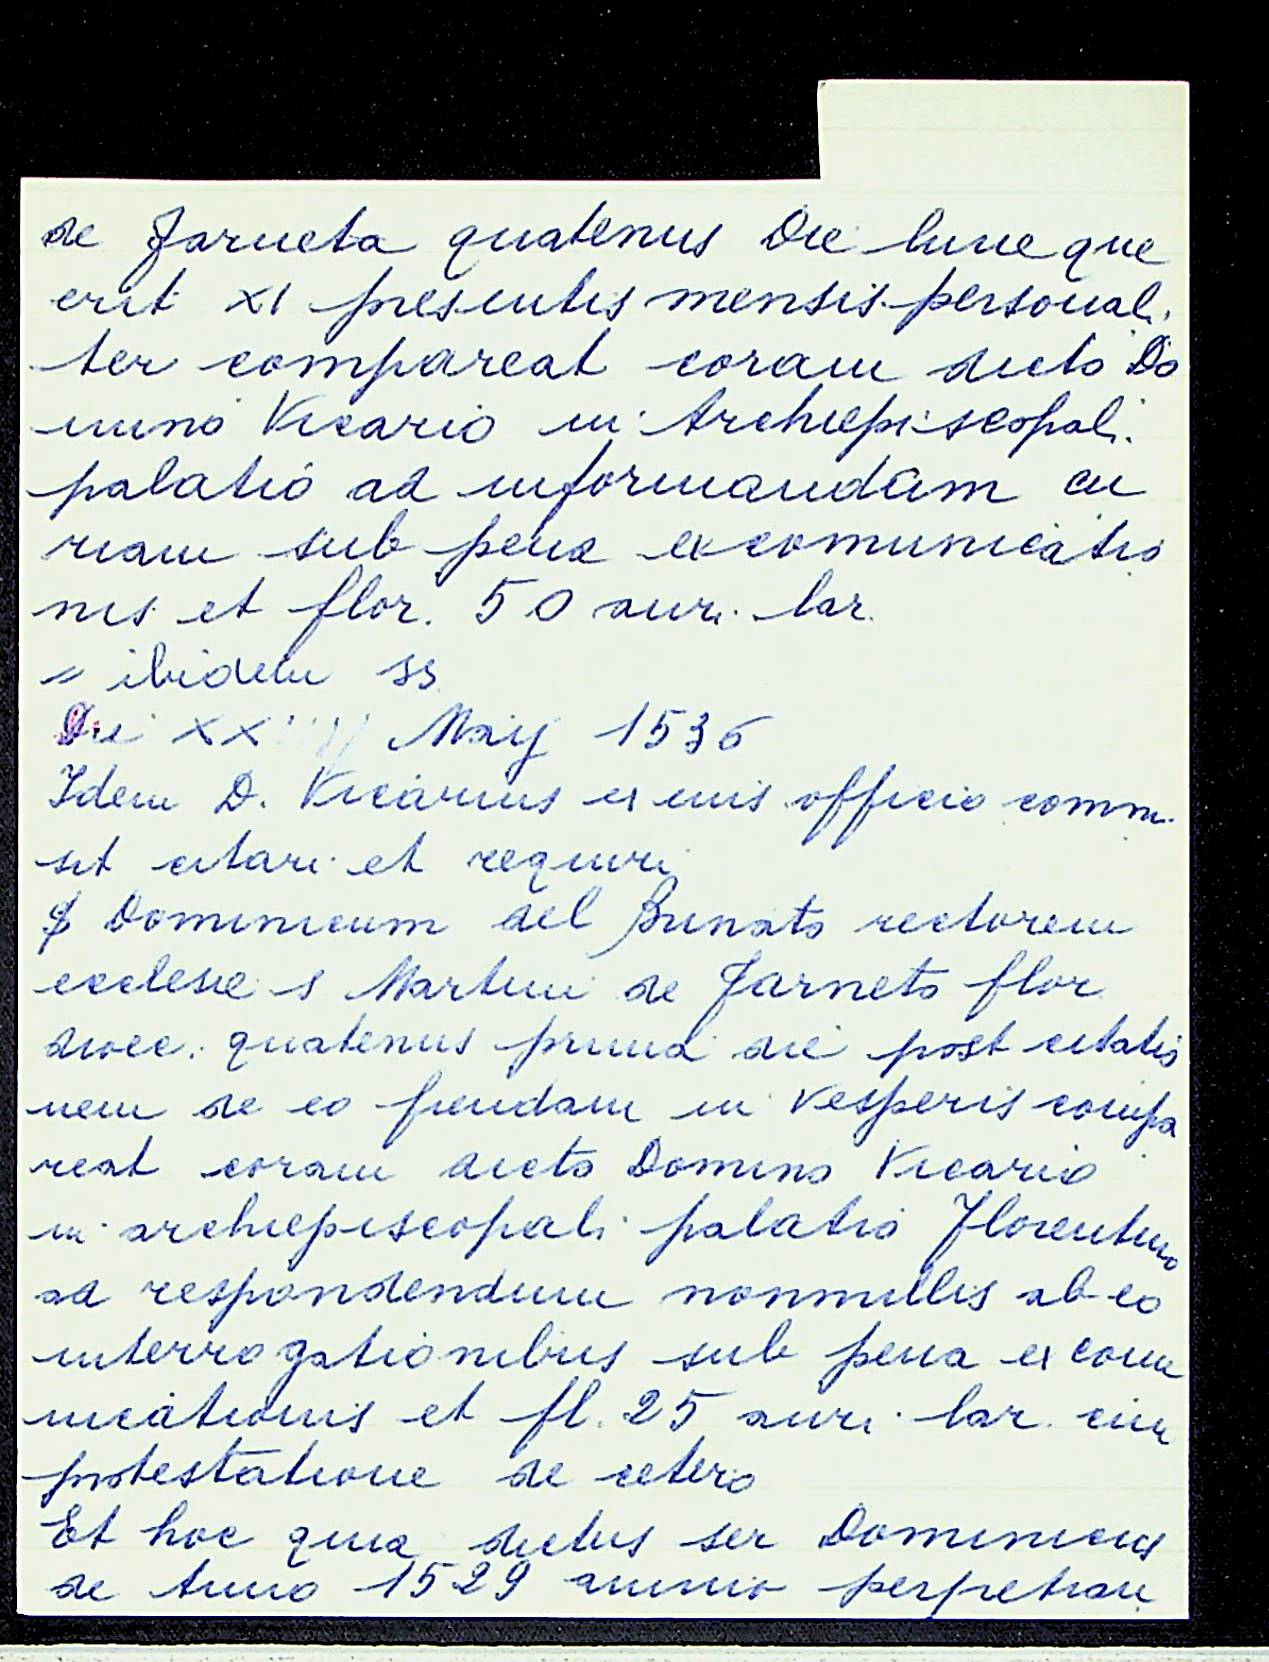 de Farneta quatenus Die lune que
erit XI presentis mensis personali
ter compareat coram dicto Do
mino Vicario in Archiepiscopali
palatio ad informandam cu
riam sub pena excomunicatio
nis et flor. 50 auri lar.
= ibidem ss
Die XX Maij 1536
Idem D. Vicarius ex eius officio commi
sit citari et requiri
S Dominicum del Bunato rectorem
ecclesie s Martini de Farneto flor
dioec. quatenus prima die post citatio
nem de eo fiendam in Vesperis compa
reat coram dicto Domino Vicario
in archiepiscopali palatio Florentino
ad respondendum nonnullis ab eo
interrogationibus sub pena excomu
nicationis et fl. 25 auri lar. cum
protestatione de cetero
Et hoc quia dictus ser Dominicus
de Anno 1529 animo perpetran